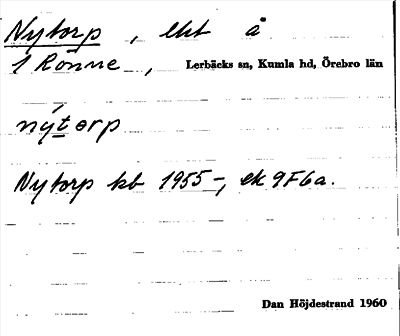 Nytorp, lht å
1 Rönne, Lerbäcks sn, Kumla hd, Örebro län
nýtorp
Nytorp kb 1955-, ek 9F6a.
Dan Höjdestrand 1960